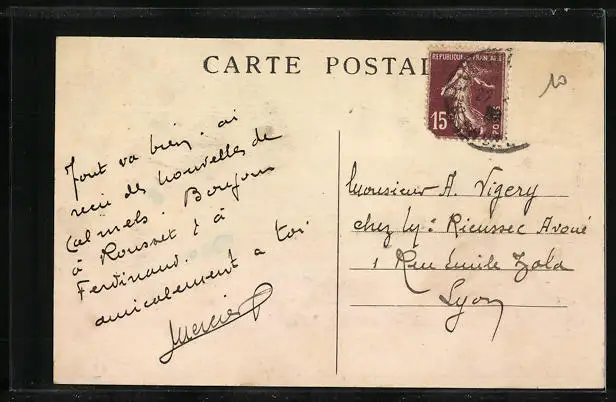 CARTE POSTAL
REPUBLIQUE FRANÇAISE
15
POSTES
10
Tout va bien. ai
reçu des nouvelles de
Calmels. Bonjour
à Rousset & à
Ferdinand.
amicalement a toi
Mercier
Monsieur A. Vigery
chez Me Rieussec Avoué
1 Rue Emile Zola
Lyon